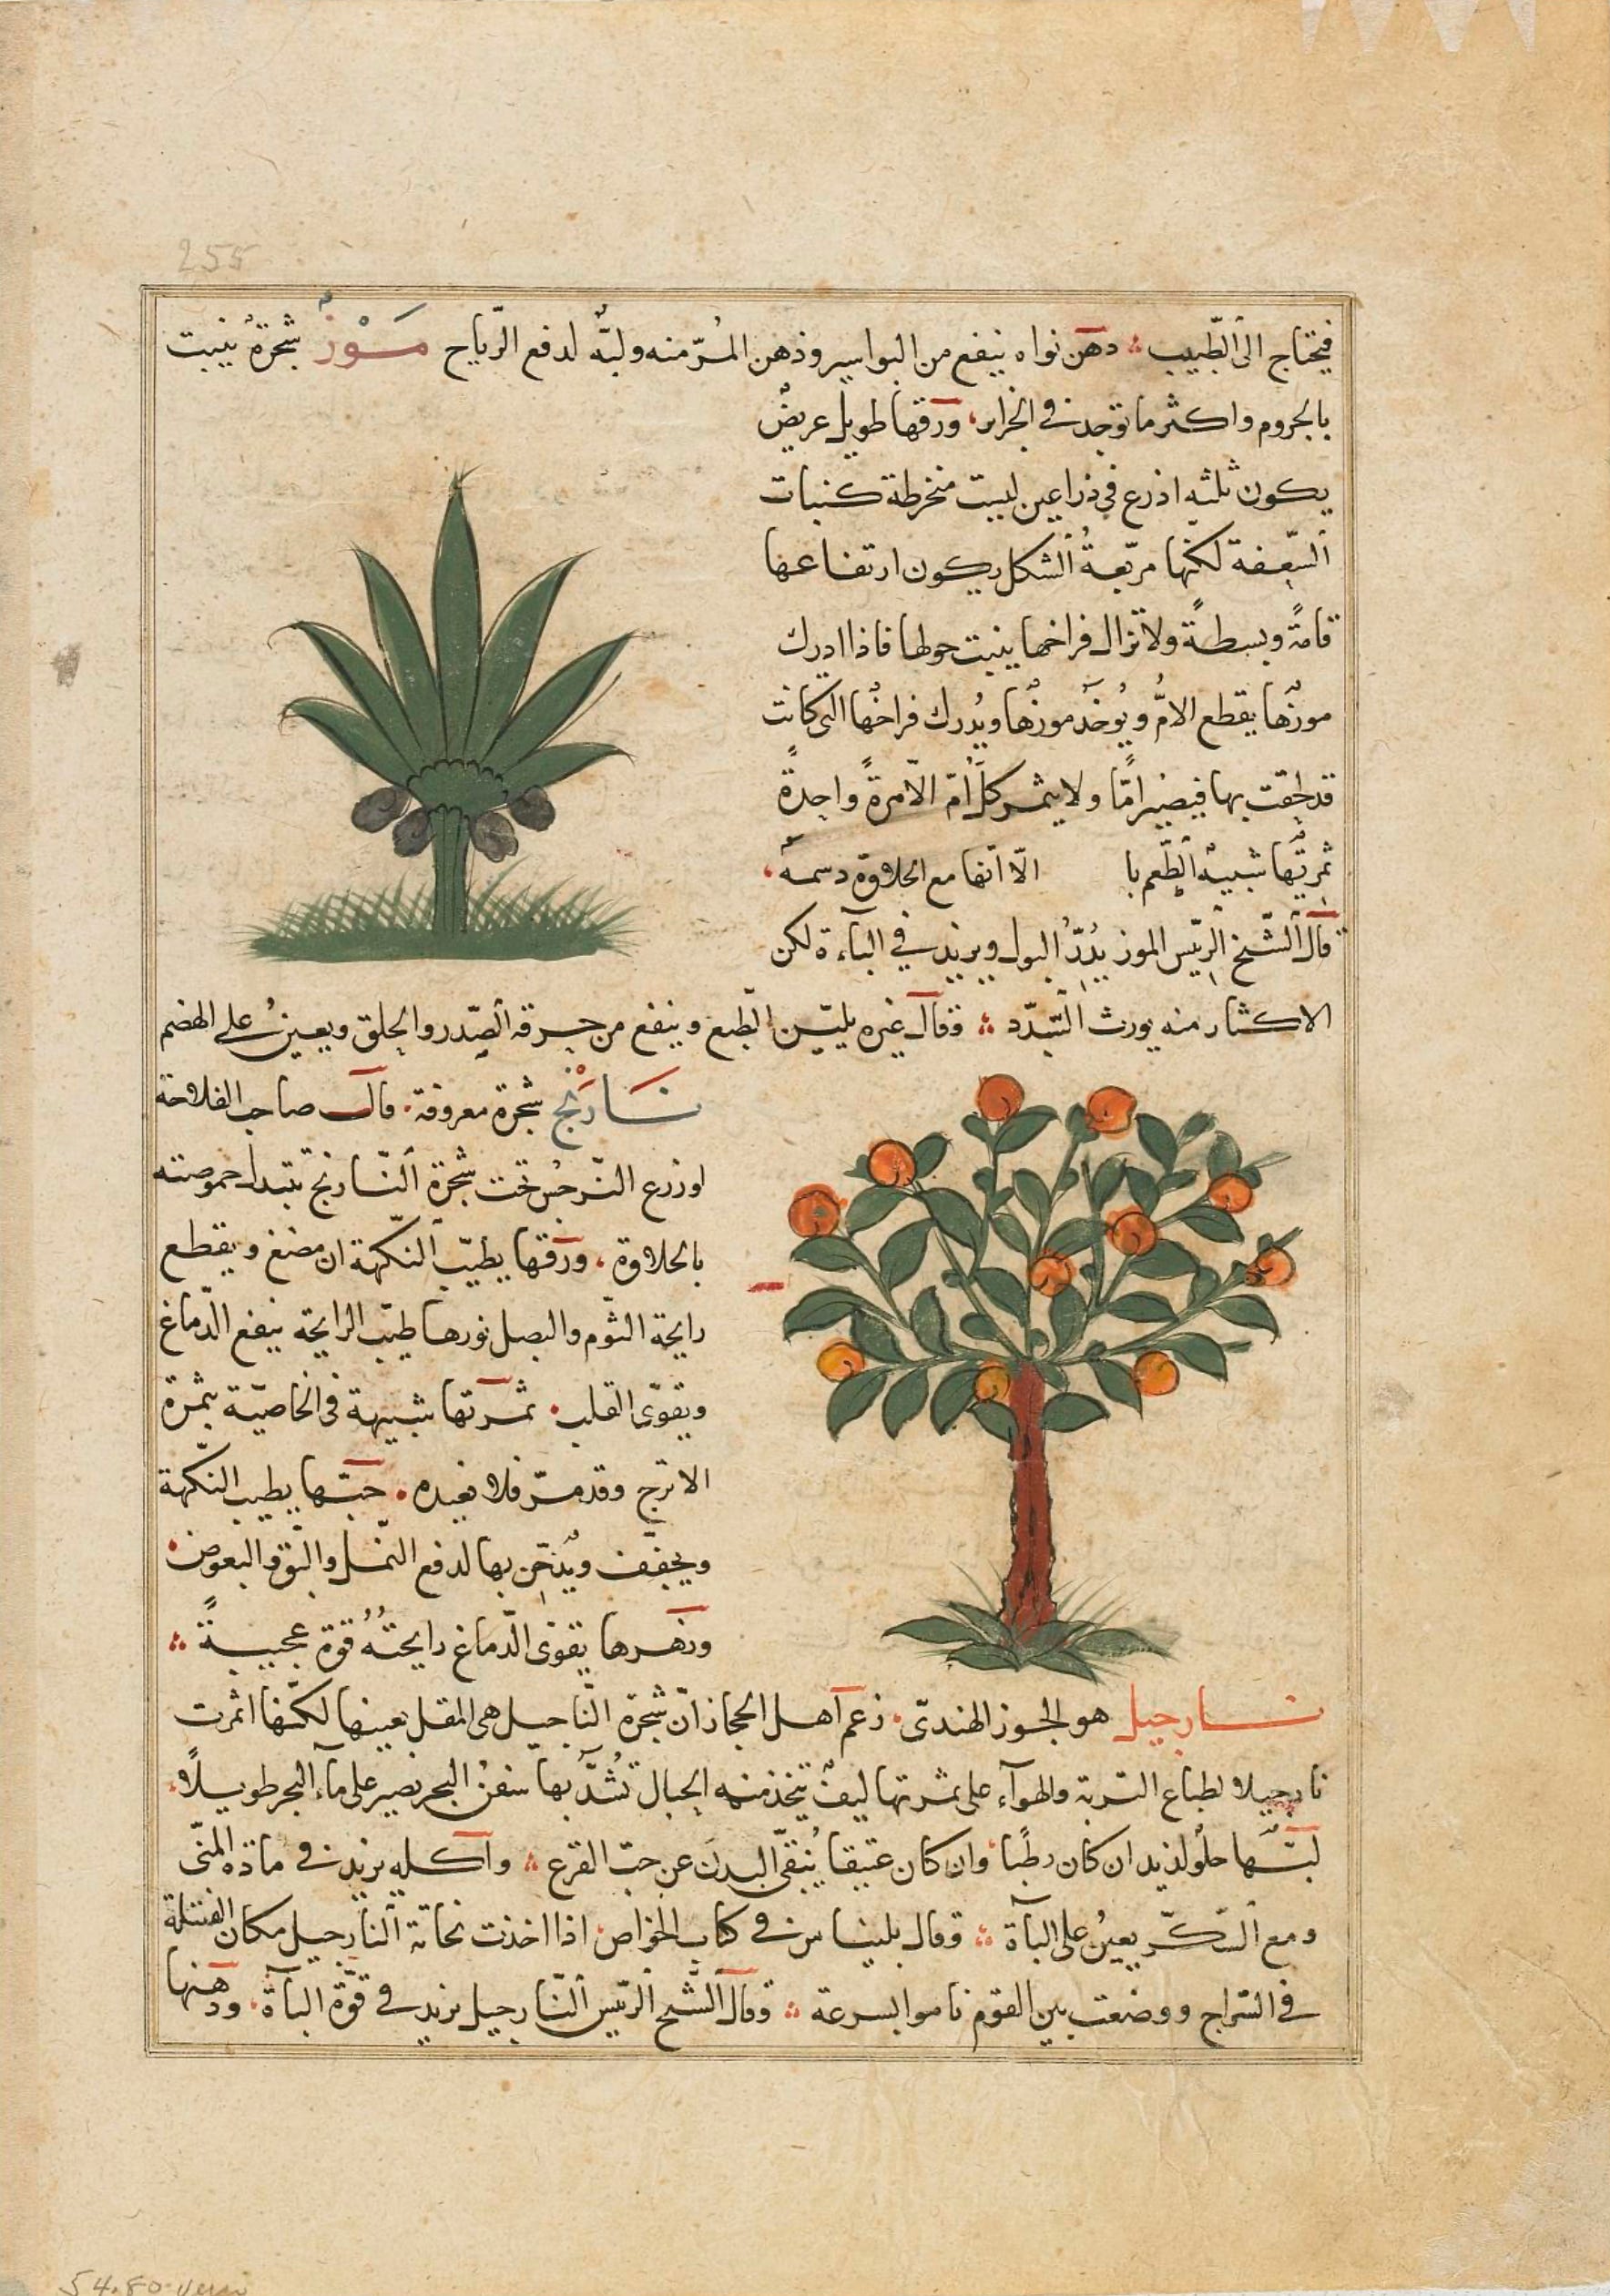 255
فيحتاج الى الطّبيب ؞ دهن نواه ينفع من البواسير ودهن المُرّ منه ولبّه لدفع الرّياح مَوْز شجرةٌ ينبت
بالجروم واكثر ما توجد في الجزاير، ورقها طويل عريضٌ
يكون ثلثه اذرع في ذراعين ليست منخرطة كنبات
السّعفة لكنّها مربّعةُ الشكل يكون ارتفاعها
قامةً وبسطةً ولا تزال فراخها ينبت حولها فاذا ادرك
موزُها يقطع الامُّ ويُوخذ موزُها ويُدرك فراخُها التى كانت
قد لحقت بها فيصير امًّا ولا يثمر كلّ اُمّ الّا مرةً واحدةً
ثمرتُها شبيهُ الطّعم با الّا انّها مع الحلاوة دسمه،
قال الشّيخ الرئيس الموز يُدِرُّ البول ويزيد في الباءة لكن
الاكثار منه يورث السّدد ؞ وقال غيره يليّن الطّبع وينفع من حرقة الصّدر والحلق ويعينُ على الهضم
نَارَنْج شجرة معروفة. قال صاحب الفلاحة
لو زرع النّرجس تحت شجرة النّارنج تتبدل حموضته
بالحلاوة، ورقها يطيّب النكّهة ان مضغ ويقطع
رايحة الثّوم والبصل نورها طيّب الرايحة ينفع الدّماغ
ويقوّى القلب. ثمرتها شبيهة في الخاصيّة بثمرة
الاترج وقد مرّ فلا نعيده. حبّها يطيب النكّهة
ويجفّف ويُدخّن بها لدفع النّمل والبقّ والبعوض
وزهرها يقوّى الدّماغ رايحتُهُ قوة عجيبةً ؞
نارجيل هو الجوز الهندىّ. زعم اهل الحجاز انّ شجرة النّاجيل هى المقل بعينها لكنّها اثمرت
نارجيلا لطباع التربة والهوآء على ثمرتها ليفٌ يتّخذ منه الحبال تُشدُّ بها سفنُ البحر تصير على مآء البحر طويلًا،
لبُّها حلو لذيذ ان كان رطبًا، وان كان عتيقا يُنقّى البدن عن حبّ القرع ؞ واكله يزيد في مادة المنّى
ومع السكّر يعينُ على الباآة ؞ وقال بليناس في كتاب الخواص، اذا اخذت نحاتة النّارجيل مكان الفتيلة
في السّراج ووضعت بين القوم ناموا بسرعة ؞ وقال الشّيخ الرئيس النّارجيل يزيد في قوّة الباآة، ودهنها
54.80 verso